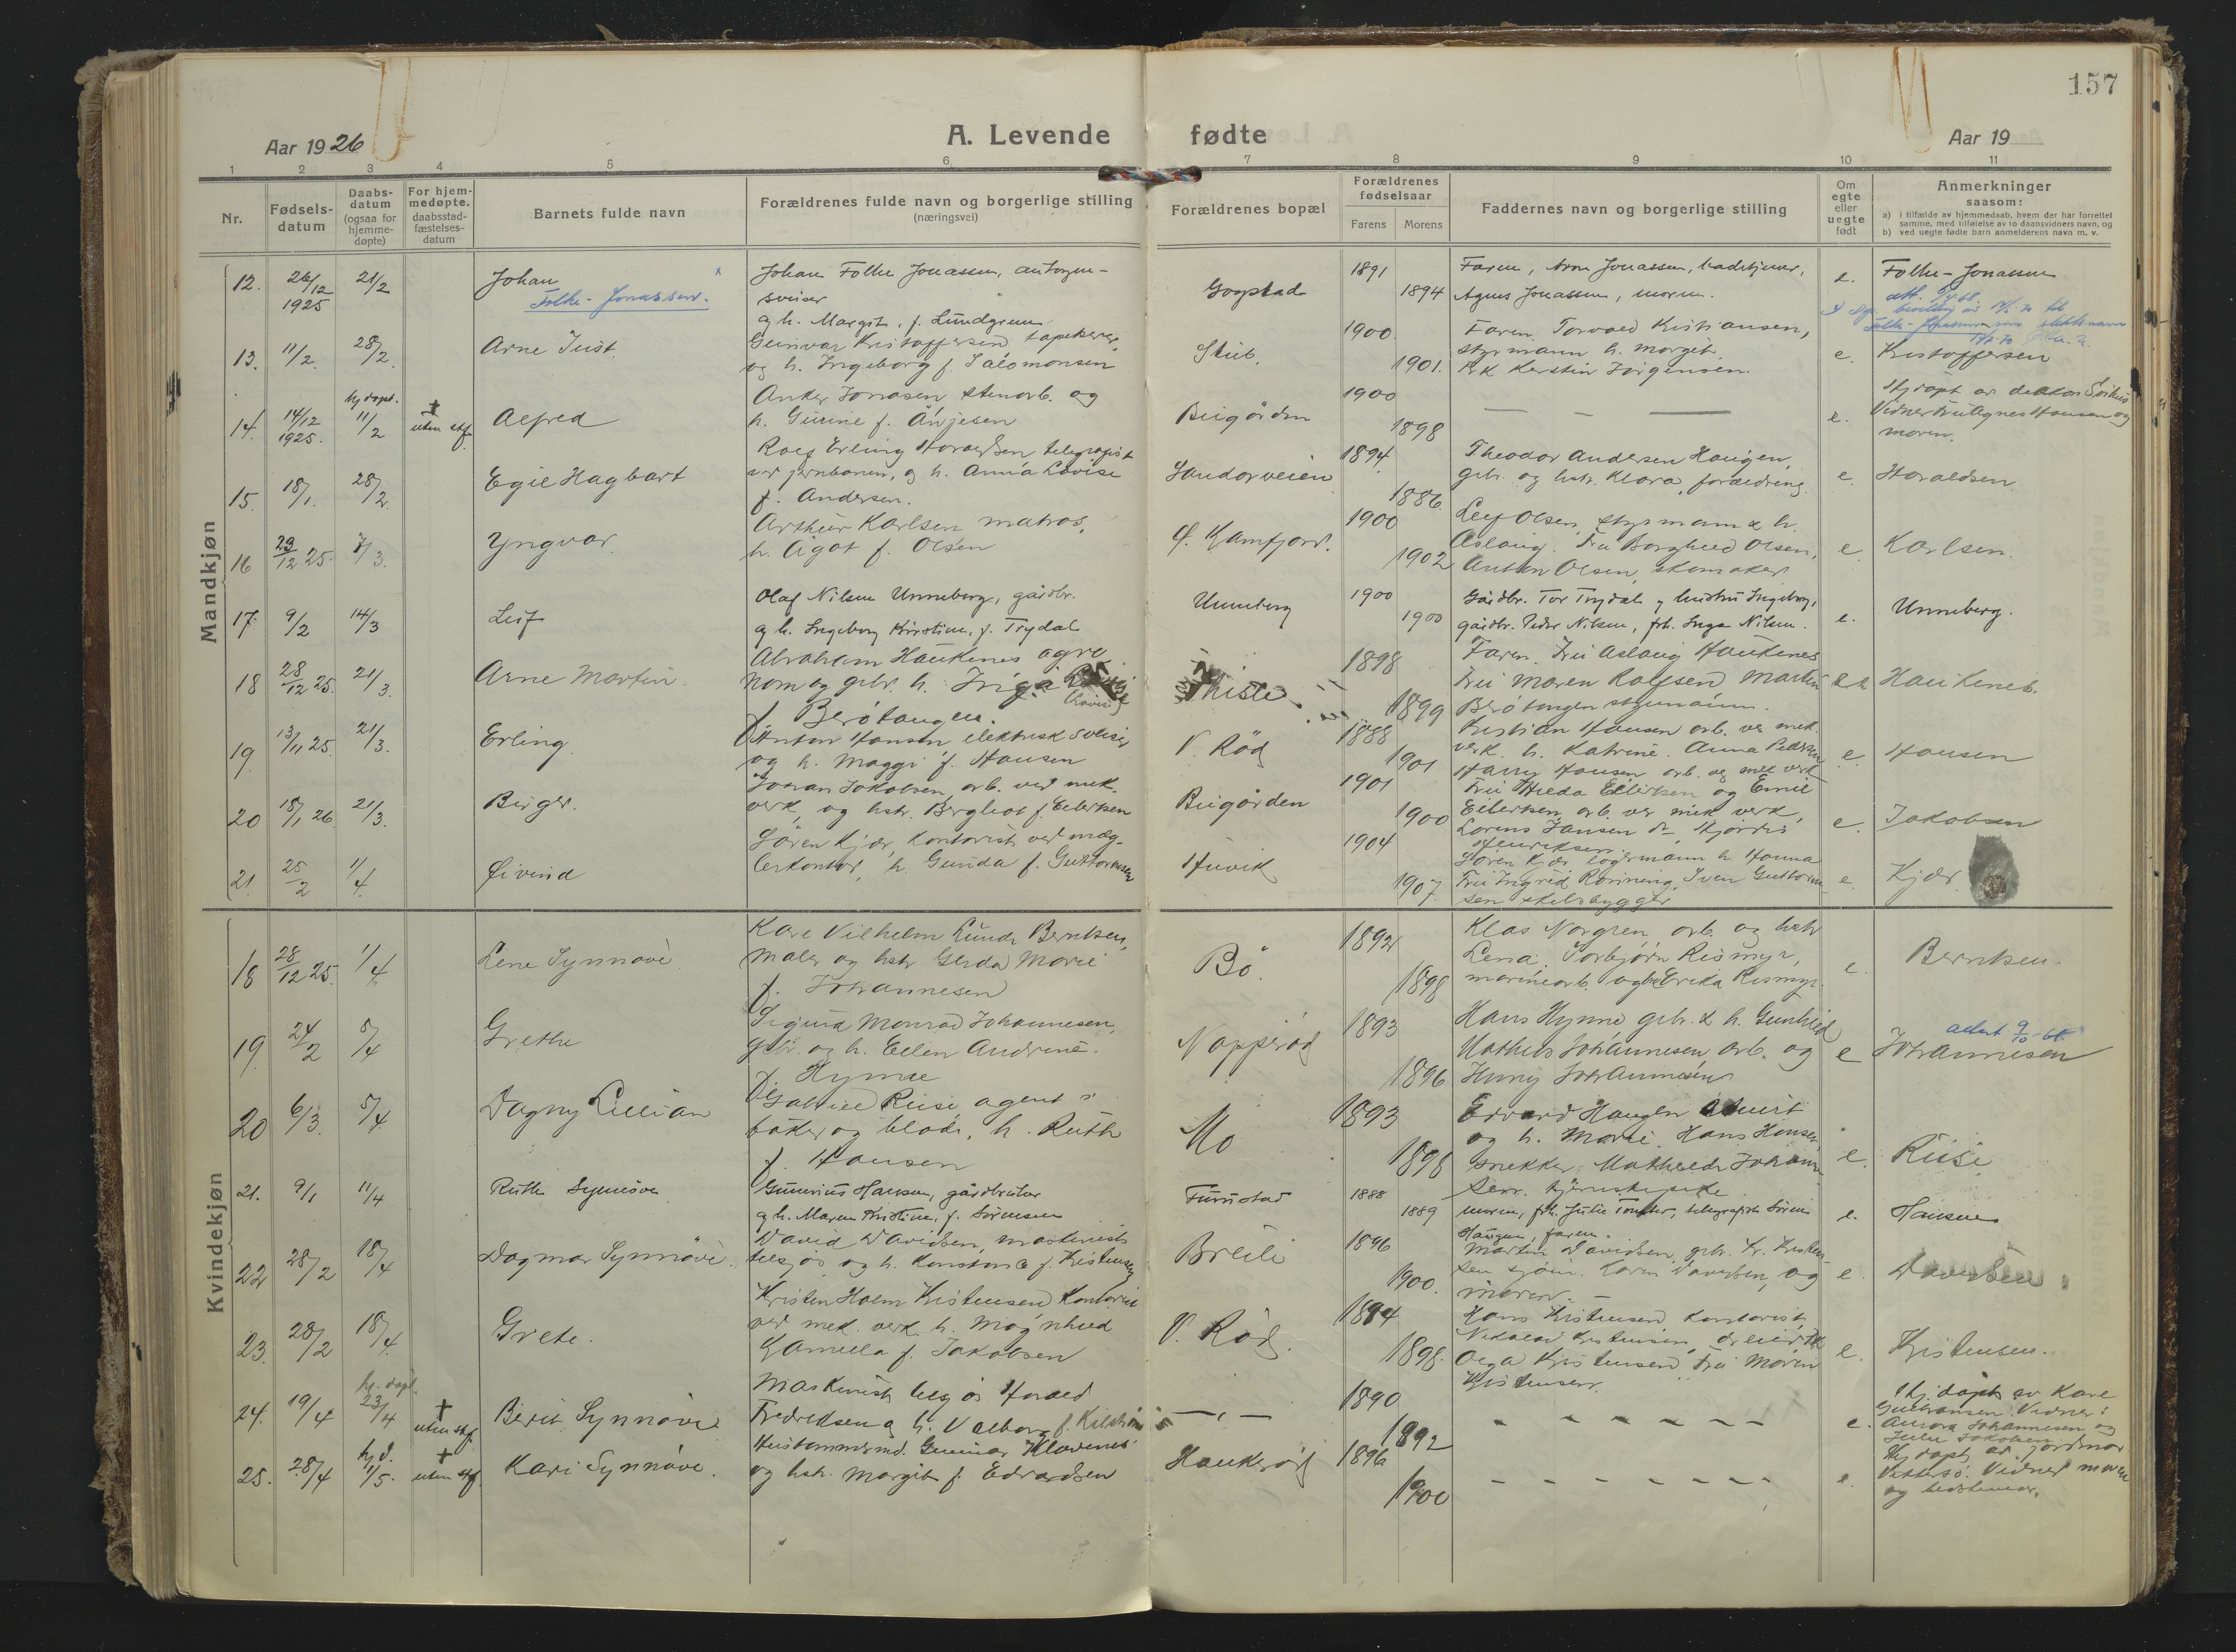 157
Aar 1926
A. Levende fødte
Aar 19
1 2 3 4 5 6 7 8 9 10 11
Nr.
Fødsels-
datum
Daabs-
datum
(ogsaa for
hjemme-
døpte)
For hjem-
medøpte.
daabsstad-
fæstelses-
datum
Barnets fulde navn
Forældrenes fulde navn og borgerlige stilling
(næringsvei)
Forældrenes bopæl
Forældrenes
fødselsaar
Farens Morens
Faddernes navn og borgerlige stilling
Om
egte
eller
uegte
født
Anmerkninger
saasom:
a) i tilfælde av hjemmedaab, hvem der har forrettet
samme, med tilføielse av to daabsvidners navn, og
b) ved uegte fødte barn anmelderens navn m. v.
Mandkjøn
12. 26/12 1925 21/2 Johan
Folke-Jonassen.
Johan Folke Jonassen,
sveiser
og h. Margit, f. Lundgren
Gogstad 1891 1894
Faren, Arne Jonassen,
Agnes Jonassen, moren.
e. Folke-Jonassen
13. 11/2. 28/2. Arne Just
Gunvar Kristoffersen tapetserer,
og h. Ingeborg f. Salomonsen
Stub. 1900. 1901.
Faren. Torvald Kristiansen,
styrmann h. Margit.
Frk Kerstin Jørgensen.
e. Kristoffersen
14. 14/12 1925. hj. døpt. 11/2 † uten stf. Alfred
Anker Jonasen stenarb. og
h. Gunine f.
Bugården 1900 1898
— — —
e. Hj døpt av
Vidner Fru Agnes Hansen og
moren.
15. 18/1. 28/2. Egil Hagbart
Rolf Erling Haraldsen telegrafist
ved jernbanen, og h. Anna Lovise
f. Andersen.
Sandarveien 1894 1886
Theodor Andersen Haugen,
gbr. og hstr. Klara,
e. Haraldsen
16 23/12 25. 7/3. Yngvar.
Arthur Karlsen matros,
h. Ågot f. Olsen
Ø. Kamfjord. 1900 1902
Leif Olsen, styrmann & h.
Aslaug. Fru Borghild Olsen,
Anton Olsen, skomaker
e Karlsen.
17. 9/2 14/3 Leif
Olaf Nilsen Unneberg, gårdbr.
og h. Ingeborg Kirstine, f. Trydal
Unneberg 1900 1900
Gårdbr. Tor Trydal og hustru Ingeborg,
gårdbr. Peder Nilsen, frk. Inga Nilsen.
e. Unneberg.
18 28/12 25. 21/3. Arne Martin.
Abraham Haukenes agro
nom og gbr. h. Inga
f. Berøtangen.
1898 1899
Faren. Fru Aslaug Haukenes
Fru Maren Rolfsen Martin
Berøtangen styrmann.
19 13/11 25 21/3. Erling.
Anton Hansen elektrisk sveiser
og h. Maggi f. Hansen
V. Rød 1888 1901
Kristian Hansen arb. ved mek.
verk h. Katrine. Anna Pedersen
Harry Hansen arb. ved mek verk
e. Hansen
20 18/1 26. 21/3. Birger.
Johan Jakobsen, arb. ved mek.
verk, og hstr. Bergliot f. Eilertsen
Bugården 1901 1900
Fru Hilda Eilertsen og Emil
Eilertsen, arb. ved mek verk,
Lorens Jansen
Henriksen.
e. Jakobsen
21. 25/2 11/4. Øivind
Søren Kjær, kontorist ved mæg-
lerkontor, h. Gunda f. Guttormsen
Huvik 1904 1907.
Søren Kjær lagermann h. Hanna
Fru Ingrid Rønning, Sven Guttorm
sen skibsbygger
e. Kjær.
Kvindekjøn
18 28/12 25. 11/4 Lene Synnøve
Karl Vilhelm Lunde Berntsen,
maler og hstr Gerda Marie
f. Johannesen
Bø. 1892 1898
Klas Norgren, arb. og hstr
Lena. Torbjørn Rismyr,
marinearb. og fru Erika Rismyr.
e. Berntsen.
19. 24/2 5/4 Grethe
Sigurd Monrad Johannesen,
gbr. og h. Ellen Andrine.
f. Hynne
Napperød 1893 1896
Hans Hynne gbr. & h. Gunhild
Mathies Johannesen arb. og
Johannesen
e Johannesen
20 6/3. 5/4. Dagny Lillian
Gabriel Riise, agent i
bøker og blade, h. Ruth
f. Hansen
Mo 1893 1898
Edvard Haugen
og h. Marie. Hans Hansen,
snekker Mathilde Johann
sen.
e. Riise
21. 9/1 11/4 Ruth Synnøve
Gunerius Hansen, gårdbruker
og h. Maren Kristine, f. Sørensen
Furustad 1888 1889
moren, frk. Julie telegrafist Søren
Haugen, faren.
e. Hansen
22 28/2 18/4 Dagmar Synnøve.
David Davidsen, maskinist
tilsjøs og h. Konstance f. Kristensen
Breili 1896 1900.
Martin Davidsen, gbr. Kr. Kristen
sen sjøm. Karen Davidsen, og
moren.
e Davidsen.
23. 28/2 18/4. Grete.
Kristen Holm Kristensen kontorist
ved mek. verk h. Magnhild
Kamilla f. Jakobsen
V. Rød. 1894 1898.
Hans Kristensen kontorist,
Nikolai Kristensen,
Olga Kristensen Fru Maren
Kristensen.
e. Kristensen.
24. 19/4 hj. døpt. 23/4 † uten stf. Berit Synnøve
Maskinist tilsjøs Harald
Fredriksen og h. Valborg f.
— „ — 1890 1892
e. Hj. døpt av Kare
Vidner:
Aurora Johannesen og
Julie Jakobsen
25. 28/4 hj. d. 1/5. † uten stf. Kari Synnøve.
Gunnar Klavenes
og hstr. Margit f. Edvardsen
Haukerød 1896 1900
e. Hj døpt av jordmor
Vidner moren
og